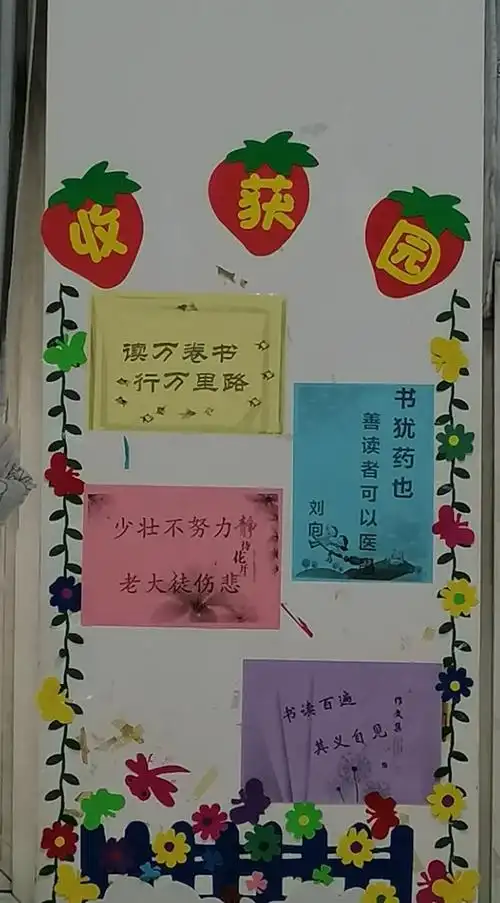 收获园
读万卷书
行万里路
书犹药也
善读者可以医
刘向
少壮不努力
老大徒伤悲
静
书读百遍
其义自见